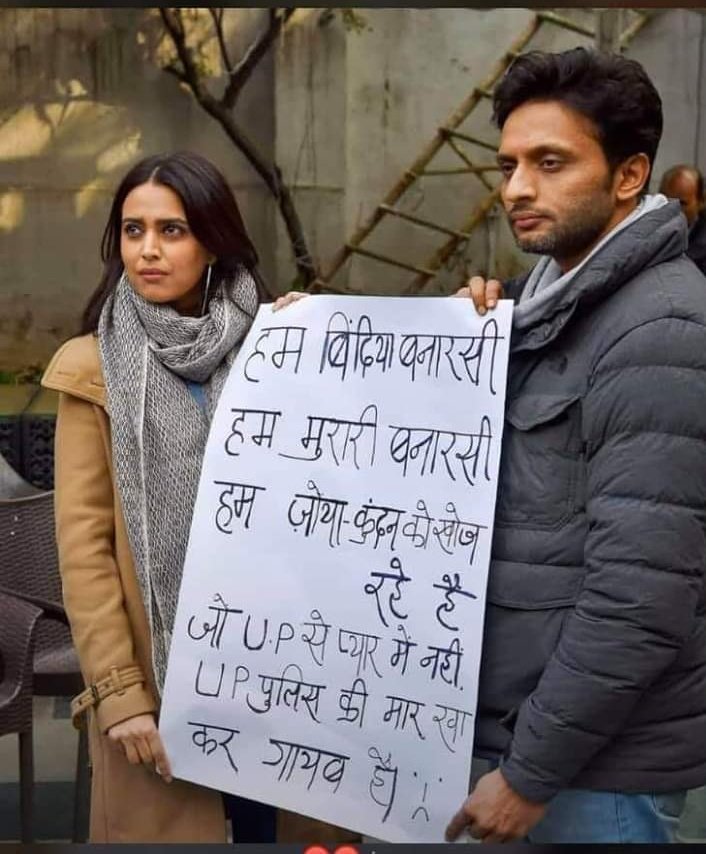 हम बिंदिया बनारसी
हम मुरारी बनारसी
हम जोया-कुंदन को खोज
रहे है
जो U.P से प्यार में नहीं.
UP पुलिस की मार खा
कर गायब है।